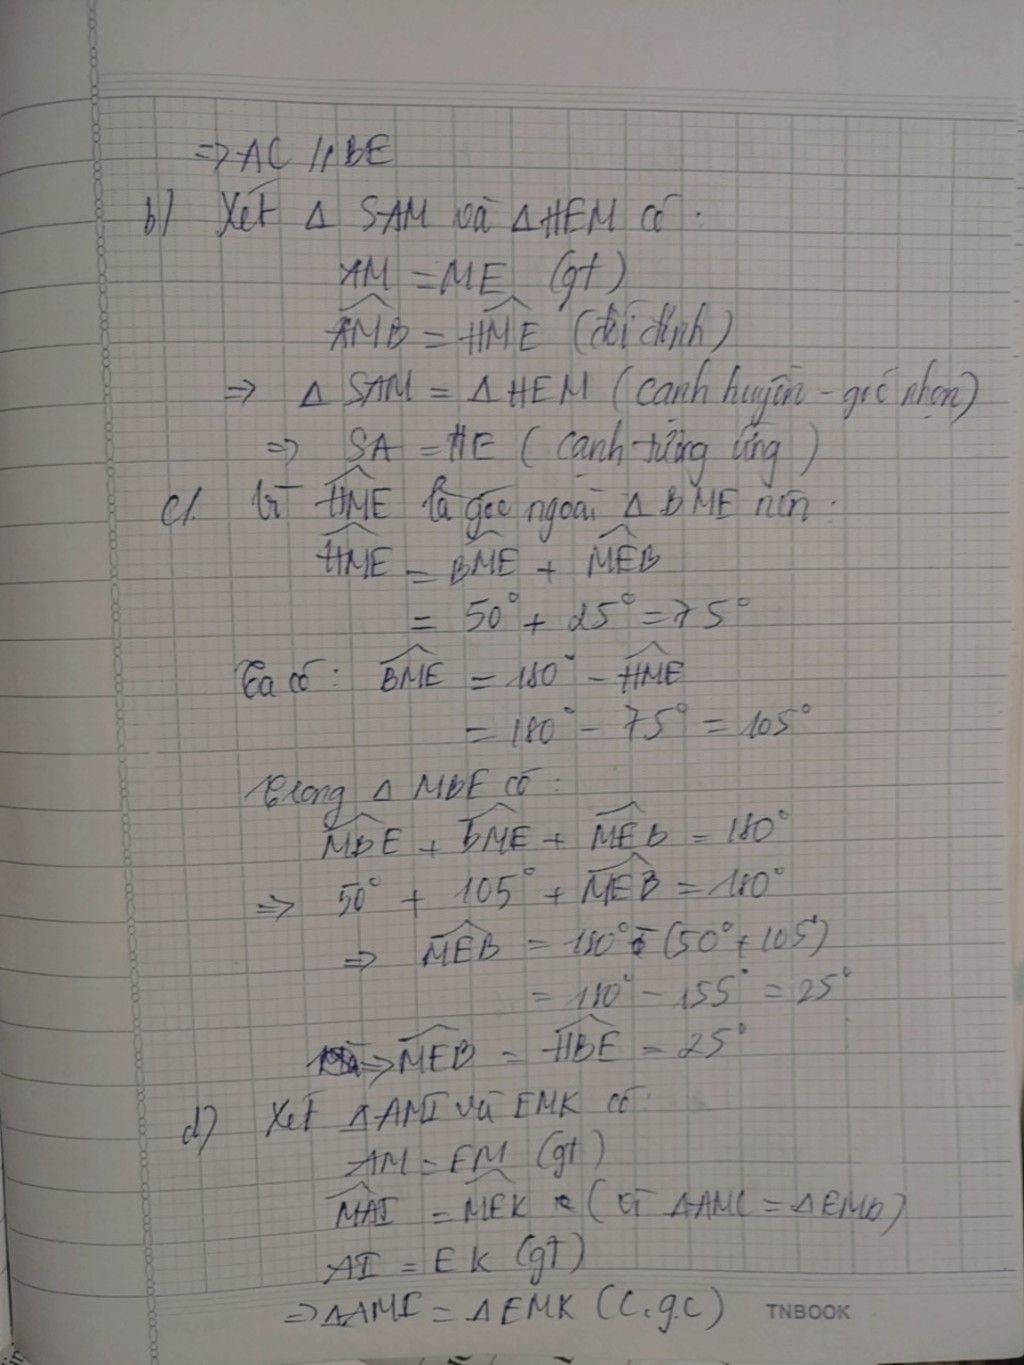 => AC // BE
b) Xét Δ SAM và Δ HEM có:
AM = ME (gt)
AMB = HME (đối đỉnh)
=> Δ SAM = Δ HEM (cạnh huyền - góc nhọn)
=> SA = HE (cạnh tương ứng)
c). Vì HME là góc ngoài Δ BME nên:
HME = BME + MEB
= 50° + 25° = 75°
Ta có: BME = 180° - HME
= 180° - 75° = 105°
Trong Δ MBE có:
MBE + BME + MEB = 180°
=> 50° + 105° + MEB = 180°
=> MEB = 180° - (50° + 105°)
= 180° - 155° = 25°
=> MEB = HBE = 25°
d) Xét Δ AMI và EMK có:
AM = EM (gt)
MAI = MEK (vì ΔAMC = ΔEMB)
AI = EK (gt)
=> ΔAMI = ΔEMK (c.g.c)
TNBOOK